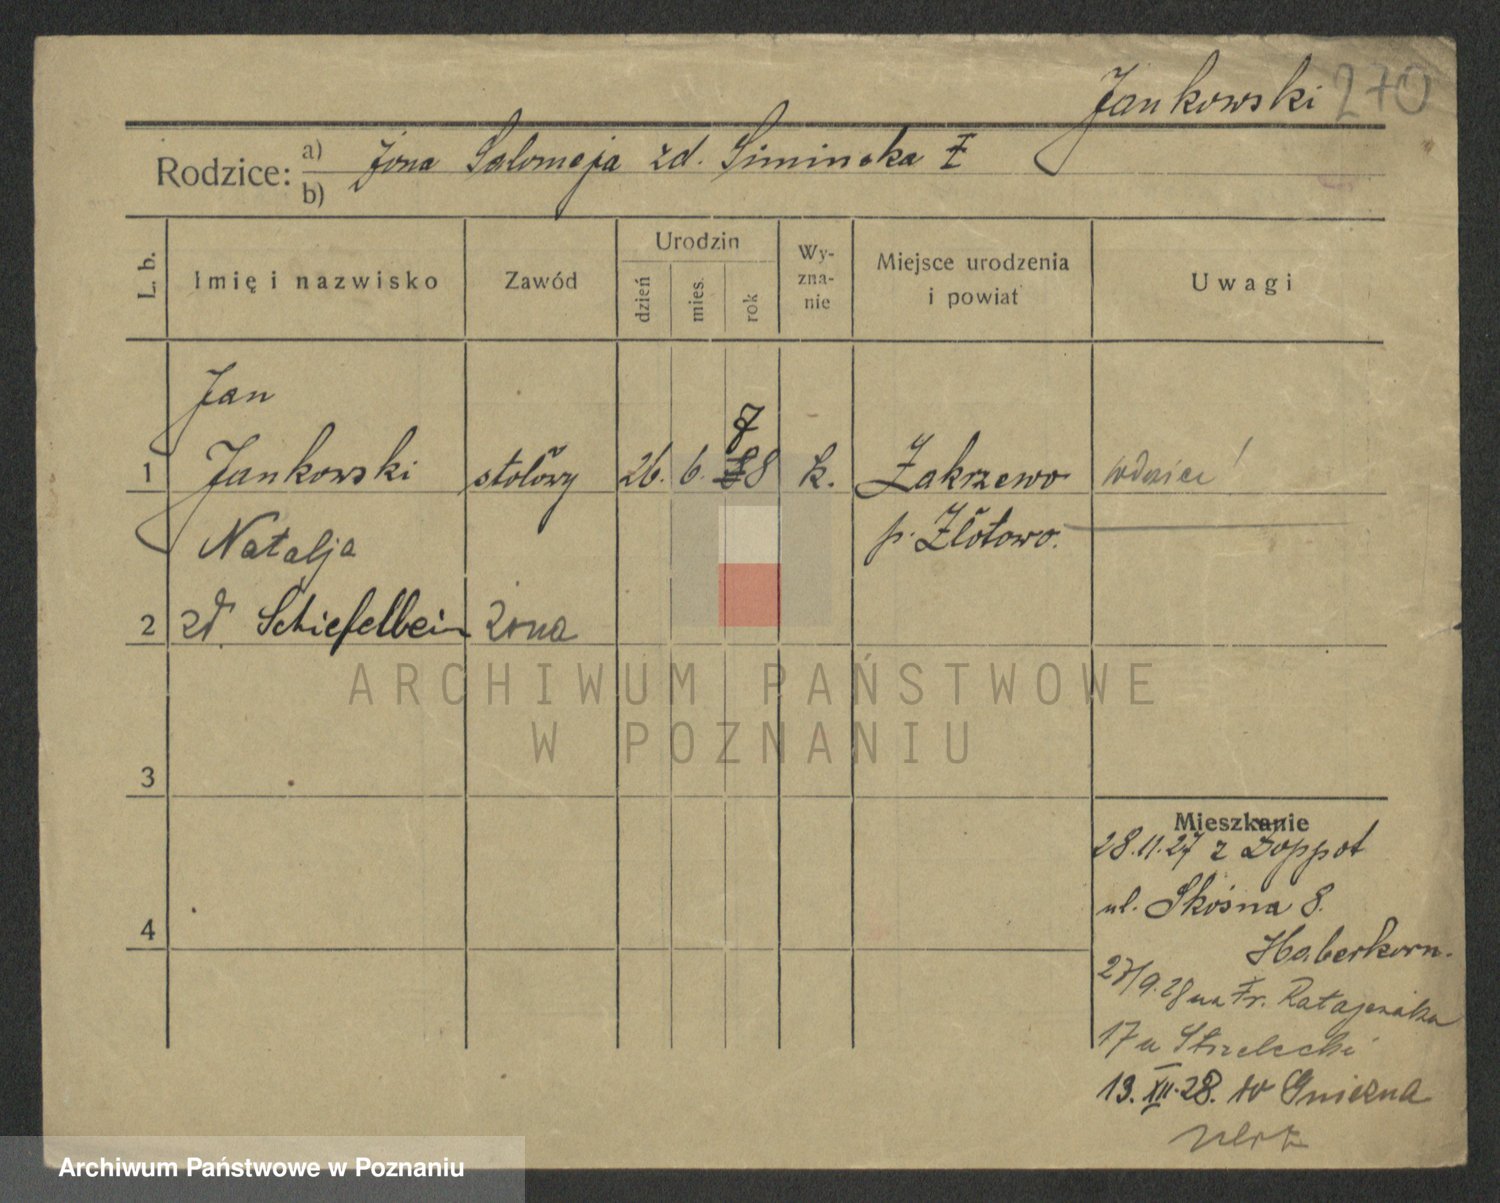 Jankowski 270
Rodzice: a) Jona Salomeja zd. Siminska
b)
L. b.
Imię i nazwisko
Zawód
Urodzin
dzień
mies.
rok
Wy-
zna-
nie
Miejsce urodzenia
i powiat
Uwagi
Jan
7
1 Jankowski stołowy 26. 6. 88 k. Zakrzewo
Natalja p. Złotowo.
2 zd Schiefelbein żona
ARCHIWUM PAŃSTWOWE
W POZNANIU
3
Mieszkanie
28.11.27 z Zoppot
ul. Skośna 8.
4
Haberkorn.
27/9.28 na Fr. Ratajczaka
17 u Strzelecki
13. XII. 28. do Gniezna
Archiwum Państwowe w Poznaniu